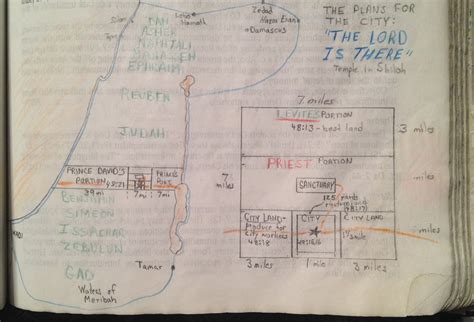 THE PLANS FOR
THE CITY:
"THE LORD
IS THERE"
Temple in Shiloh
Zedad
Hazar Enan
Damascus
Hamath
DAN
ASHER
NAPHTALI
MANASSEH
EPHRAIM
REUBEN
JUDAH
PRINCE DAVID'S
PORTION 48:21
PRINCE'S
39 mi
7 mi
7 mi
BENJAMIN
SIMEON
ISSACHAR
ZEBULUN
GAD
Tamar
Waters of
Meribah
7 miles
LEVITES PORTION
48:13 - best land
3 miles
PRIEST PORTION
7
miles
miles
SANCTUARY
125 yards
CITY LAND
produce for
city workers
48:18
CITY
CITY LAND
miles
3 miles
1 mile
3 miles